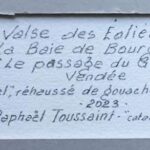 Valse des Éolie
la Baie de Bour
Le passage du G
Vendée
réhaussé de gouache
2023
Raphaël Toussaint